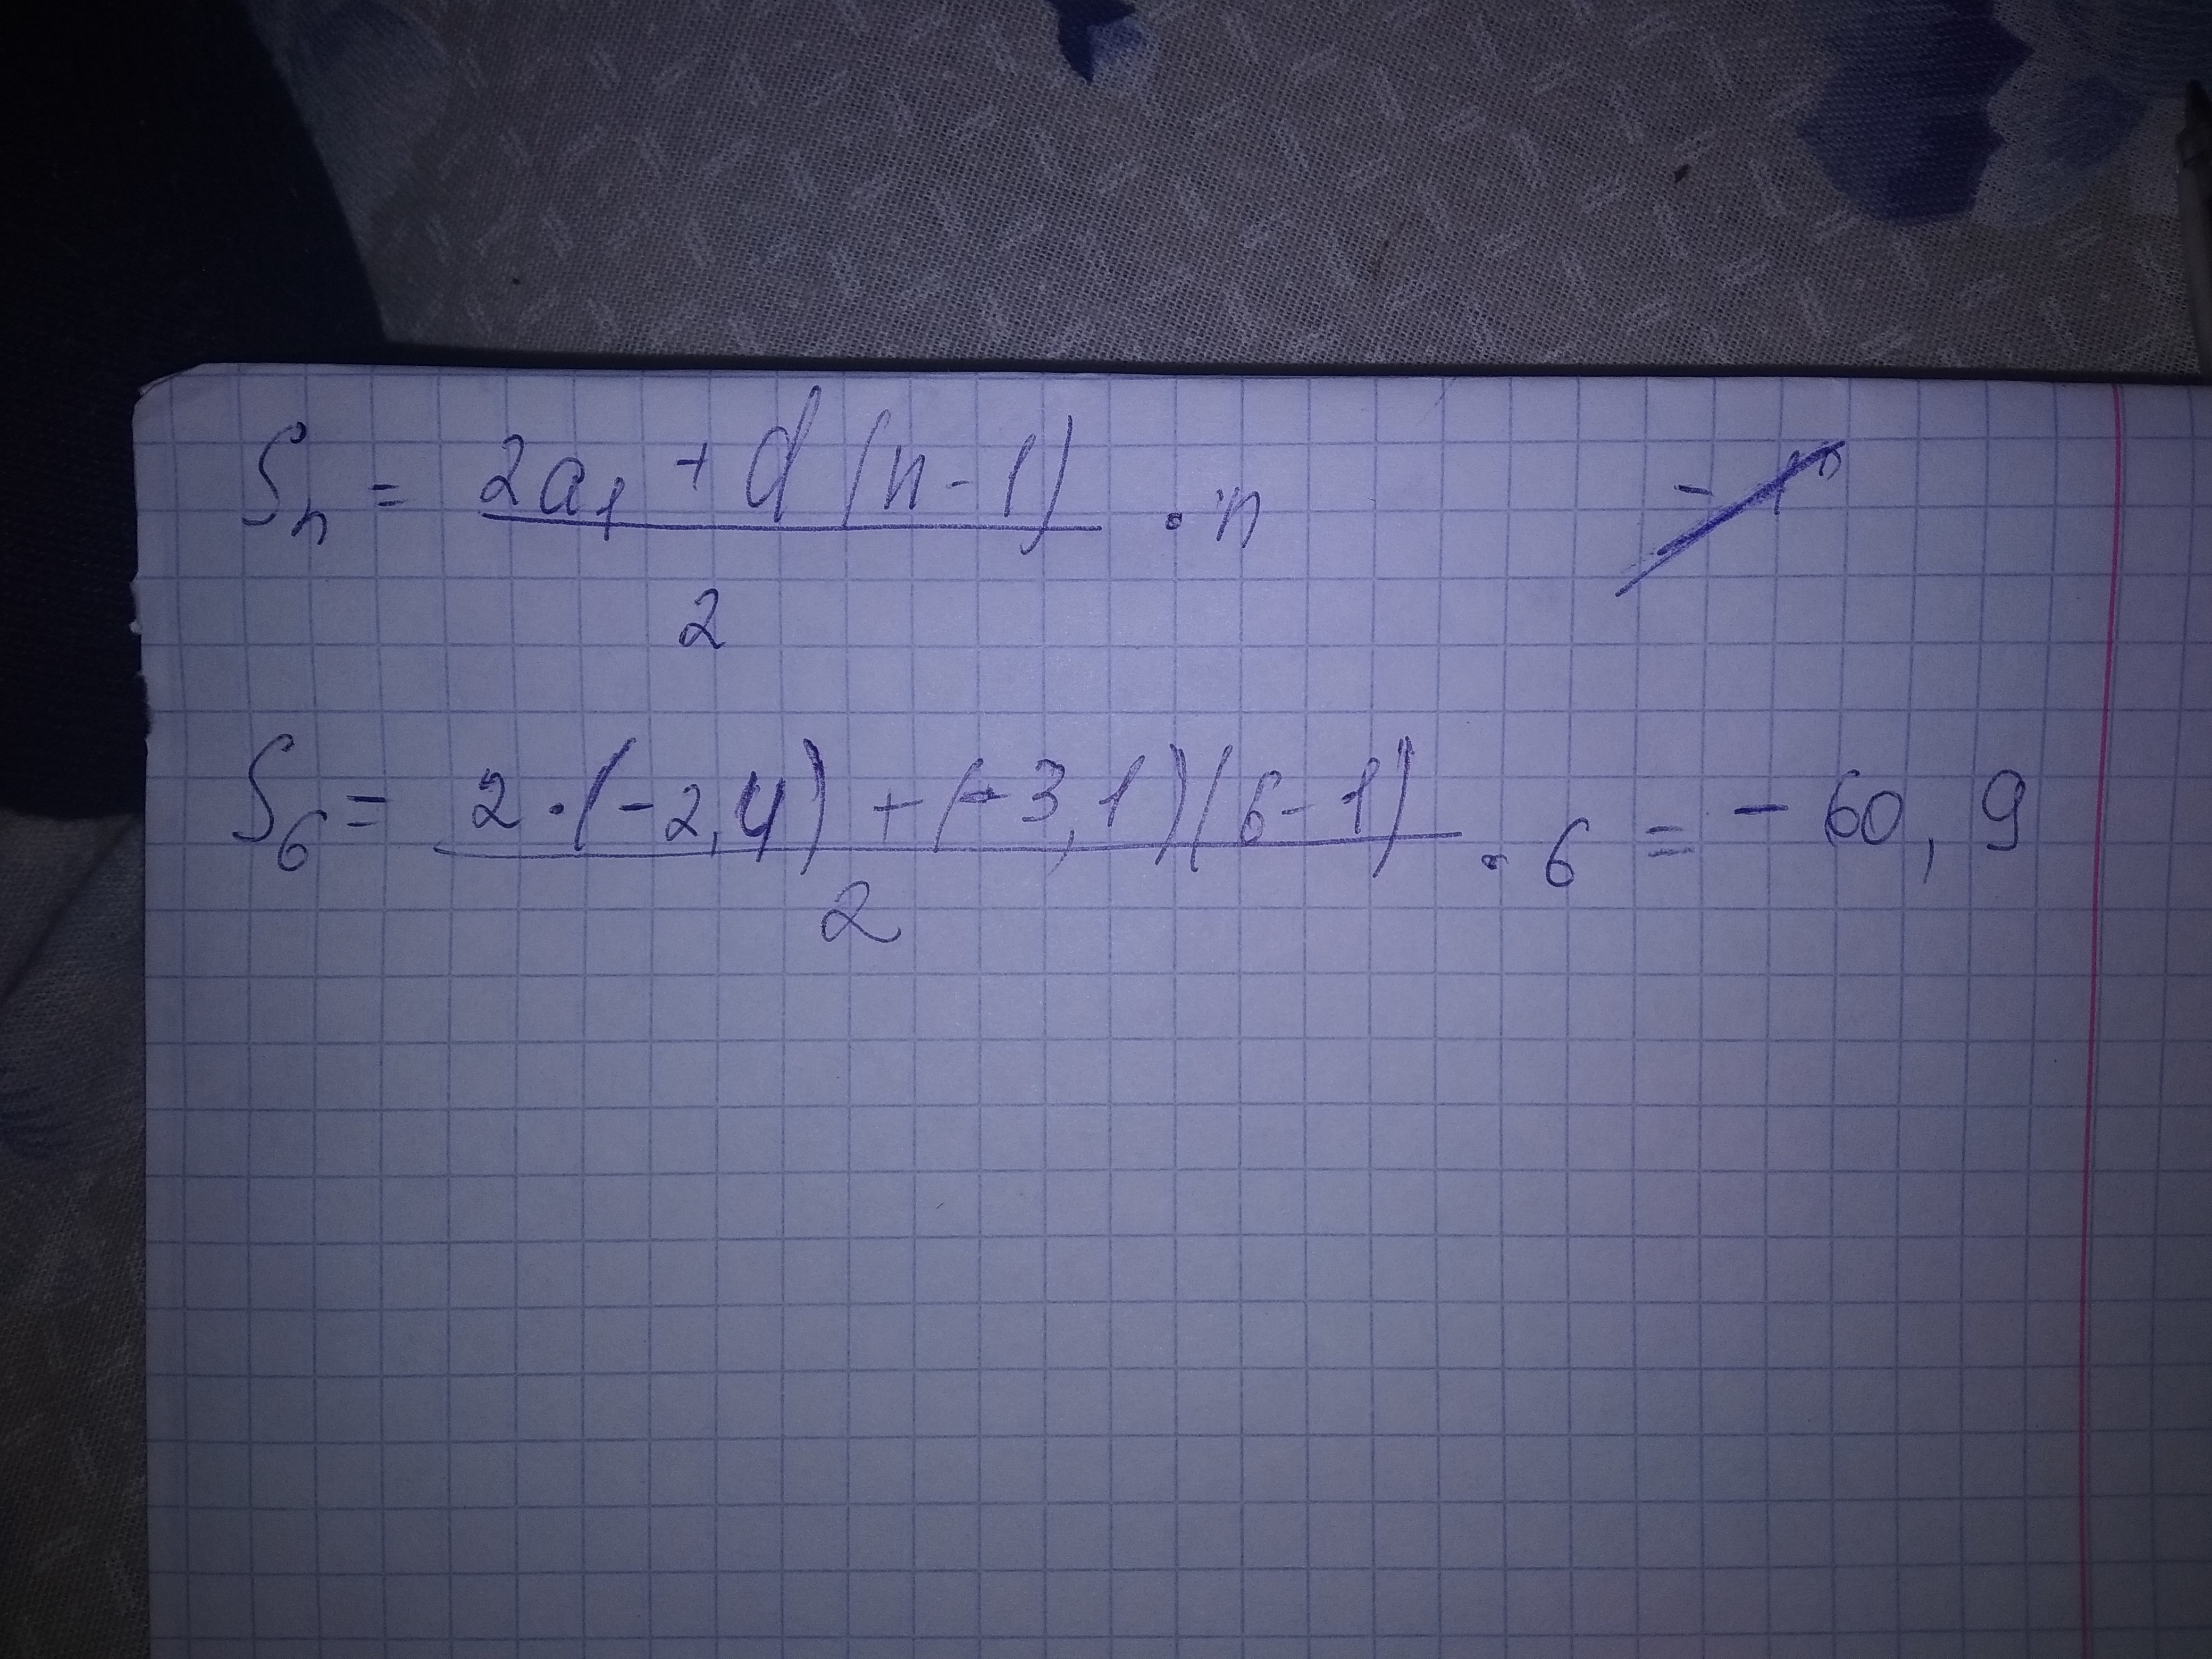 Sn = 2a1 + d(n-1) / 2 · n
S6 = 2·(-2,4) + (-3,1)(6-1) / 2 · 6 = - 60, 9